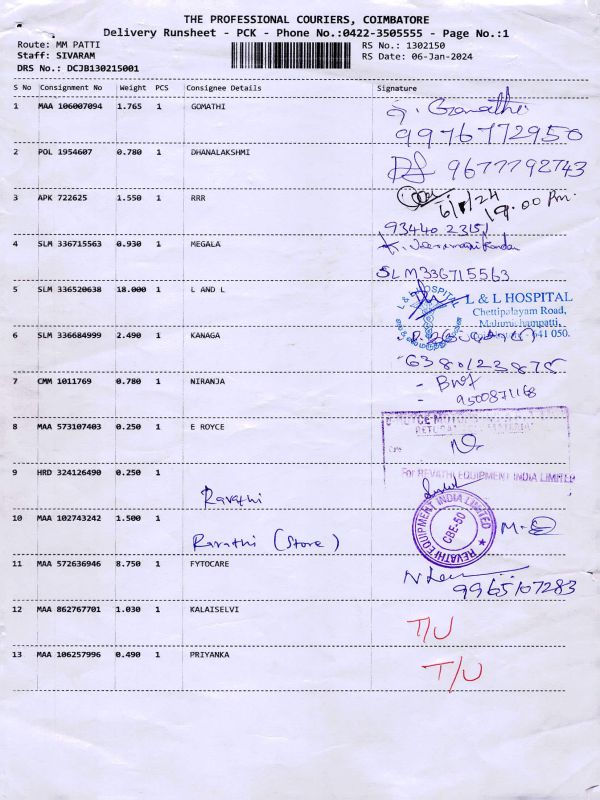 THE PROFESSIONAL COURIERS, COIMBATORE
Delivery Runsheet - PCK - Phone No.:0422-3505555 - Page No.:1
Route: MM PATTI
RS No.: 1302150
Staff: SIVARAM
RS Date: 06-Jan-2024
DRS No.: DCJB130215001
S No Consignment No Weight PCS Consignee Details Signature
1 MAA 106007094 1.765 1 GOMATHI g. Gomathi
9976772950
2 POL 1954607 0.780 1 DHANALAKSHMI 9677792743
3 APK 722625 1.550 1 RRR 6/1/24 19.00 Pm.
93440 23151
4 SLM 336715563 0.930 1 MEGALA
SLM336715563
5 SLM 336520638 18.000 1 L AND L L & L HOSPITAL
Chettipalayam Road,
Malumichampatti,
641 050.
6 SLM 336684999 2.490 1 KANAGA
6380123875
7 CMM 1011769 0.780 1 NIRANJA
9500871168
8 MAA 573107403 0.250 1 E ROYCE
9 HRD 324126490 0.250 1 Ravathi
For REVATHI EQUIPMENT INDIA LIMITED
10 MAA 102743242 1.500 1 Ravathi (Store)
REVATHI EQUIPMENT INDIA LIMITED
CBE-50
11 MAA 572636946 8.750 1 FYTOCARE
9965107283
12 MAA 862767701 1.030 1 KALAISELVI T/U
13 MAA 106257996 0.490 1 PRIYANKA T/U